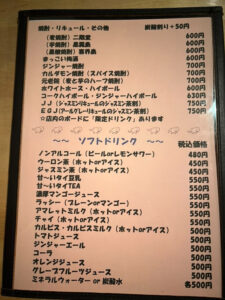 焼酎・リキュール・その他　炭酸割り＋50円
(麦焼酎) 二階堂　600円
(芋焼酎) 黒霧島　600円
(黒糖焼酎) 喜界島　600円
すっごい梅酒　600円
ジンジャー焼酎　700円
カルダモン焼酎 (スパイス焼酎)　700円
元老院 (麦と芋のハーフ焼酎)　700円
ホワイトホース・ハイボール　600円
コークハイボール・ジンジャーハイボール　630円
ＪＪ (ジャスミンリキュールのジャスミン茶割)　750円
ＥＧＪ (アールグレイリキュールのジャスミン茶割)　750円
☆店内のボードに「限定ドリンク」あります
～ ソフトドリンク ～　税込価格
ノンアルコール (ビールorレモンサワー)　480円
ウーロン茶 (ホットorアイス)　450円
ジャスミン茶 (ホットorアイス)　450円
甘〜いタイ豆乳　550円
甘〜いタイTEA　550円
濃厚マンゴージュース　550円
ラッシー (プレーンorマンゴー)　550円
アマレットミルク (ホットorアイス)　550円
チャイ (ホットorアイス)　550円
カルピス・カルピスミルク (ホットorアイス)　500円
トマトジュース　500円
ジンジャーエール　500円
コーラ　500円
オレンジジュース　500円
グレープフルーツジュース　500円
ミネラルウォーター or 炭酸水　各500円